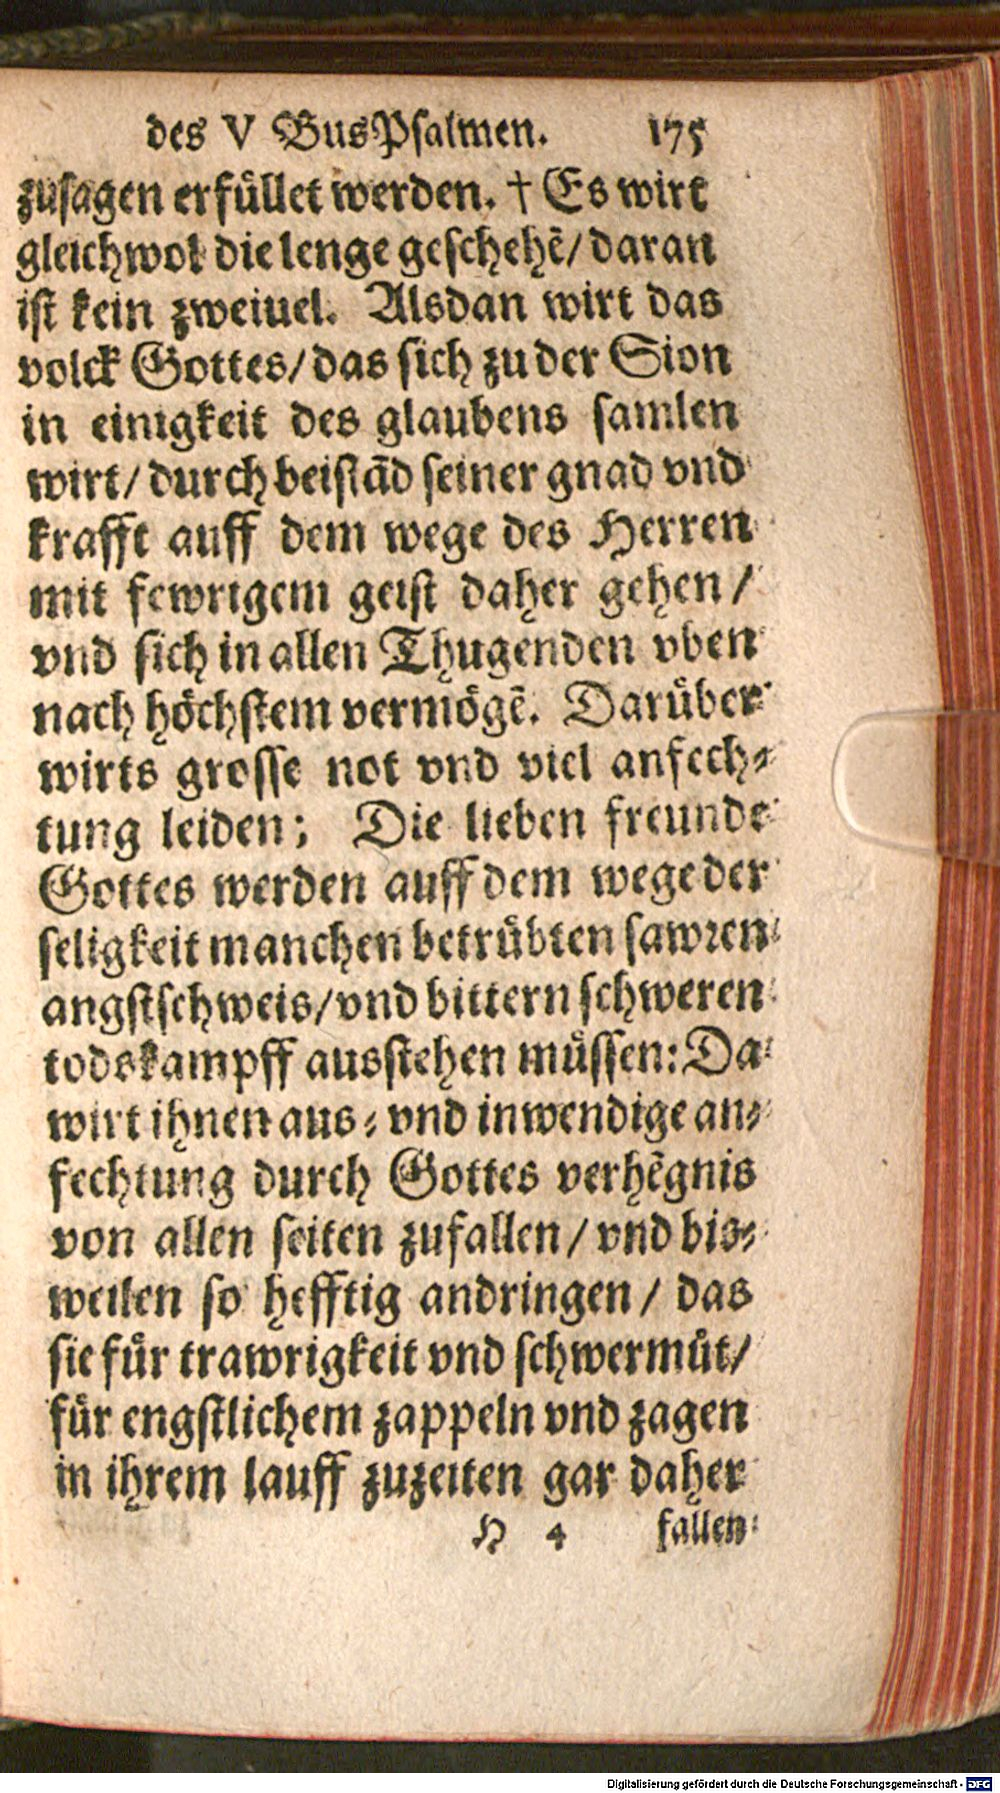 des V BusPsalmen. 175
zusagen erfüllet werden. † Es wirt
gleichwol die lenge geschehē/ daran
ist kein zweiuel. Alsdan wirt das
volck Gottes/ das sich zu der Sion
in einigkeit des glaubens samlen
wirt/ durch beistād seiner gnad vnd
krafft auff dem wege des Herren
mit fewrigem geist daher gehen/
vnd sich in allen Thugenden vben
nach höchstem vermögē. Darüber
wirts grosse not vnd viel anfech⸗
tung leiden; Die lieben freunde
Gottes werden auff dem wege der
seligkeit manchen betrübten sawren
angstschweis/ vnd bittern schweren
todskampff ausstehen müssen: Da
wirt ihnen aus⸗ vnd inwendige an⸗
fechtung durch Gottes verhēgnis
von allen seiten zufallen/ vnd bis⸗
weilen so hefftig andringen/ das
sie für trawrigkeit vnd schwermüt/
für engstlichem zappeln vnd zagen
in ihrem lauff zuzeiten gar daher
H 4 fallen
Digitalisierung gefördert durch die Deutsche Forschungsgemeinschaft - DFG